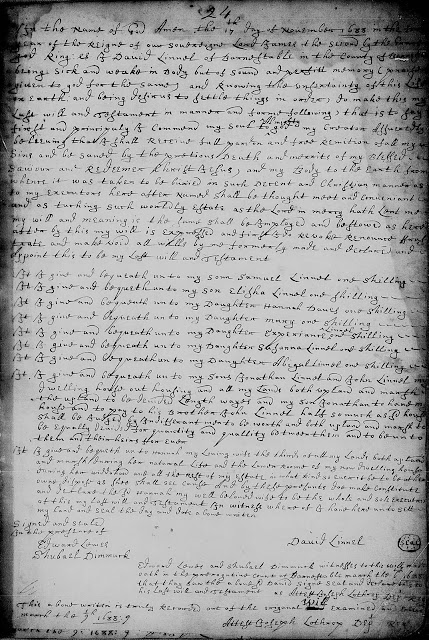 24
In the Name of God Amen the 17th day of November 1688 in the
year of the Reigne of our Sovereigne Lord James the Second by the
God King &c I David Linnel of Barnestable in the County of
being Sick and weake in Body but of Sound and perfitt memory
given to god for the Same and Knowing the unsertainty of this life
on Earth and being desirous to settle things in order, do make this my
Last will and Testament in manner and forme following that is to say
first and principaly I Commend my Soul to my Creator Assuredly
believing that I shall Receive full pardon and free Remition of all my
sins and be saved by the pretious Death and merrits of my Blessed
Saviour and Redeemer Christ Jesus, and my Body to the Earth from
whence it was taken to be buried in Such Decent and Christian manner as
to my Executors here after Named Shall be thought meet and conveniant
and as tuching Such worldly Estate as the Lord in mercy hath Lent me
my will and meaning is the same shall be Imployed and bestowed as here
after by this my will is Expressed and first I do Revoake Renounce
and make void all wills by me formerly made and declared and
Appoint this to be my Last will and Testament
It I give and bequeath un to my sonn Samuel Linnel one shilling
It I give and bequeth un to my Son Elisha Linnel one shilling
It I give and bequeath un to my Daughter Hannah Davis one shilling
It I give and bequeath un to my Daughter Mary one shilling
It I give and bequeath un to my Daughter Experience one shilling
It I give and bequeath un to my Daughter Susanna Linnel one shilling
It I give and bequeath un to my Daughter Abigal Linnel one shilling
It I give and bequeath un to my Sons Jonathan Linnel and John Linnel my
dwelling house out housing and all my Lands both upland and marsh
the upland to be devided Length wayes and my son Jonathan to have
house and to pay to his Brother John Linnel half so much as ye house
Shall be Judged by Indifferant men to be worth and both upland and marsh to
be Equally devided for quantity and quallity betweene them and to be un to
them and their heirs for Ever
It I give and bequeth un to Hannah my Loving wife the third of all my Lands both upland
and marsh during her natural Life and the Lower Roome of my now dwelling house
During her widowhood and all the Rest of my Estate in what kind so Ever it be to be at her
owne dispose as shee shall see Cause and by these presents doe make constitute
and ye said Hannah my well beloved wife to be the whole and sole Executrix
of this my last will and Testament In witness where of I have here unto sett
my hand and seal the day and date above written
Signed and Sealed
In the presence of
Edward Lewes
Shuball Dimmuck
David Linnel
Seal
Edward Lewes and Shuball Dimmuck witnesses to this will made
oath in the court at Barnestable March the
that they saw the above sd David Signe Seal and declare this to be
his Last will and Testament as Attest Joseph Lothrop
will
This above written is truly Recorded out of the origenal Examined and
march the 9: 1688: 9
Attest Joseph Lothrop